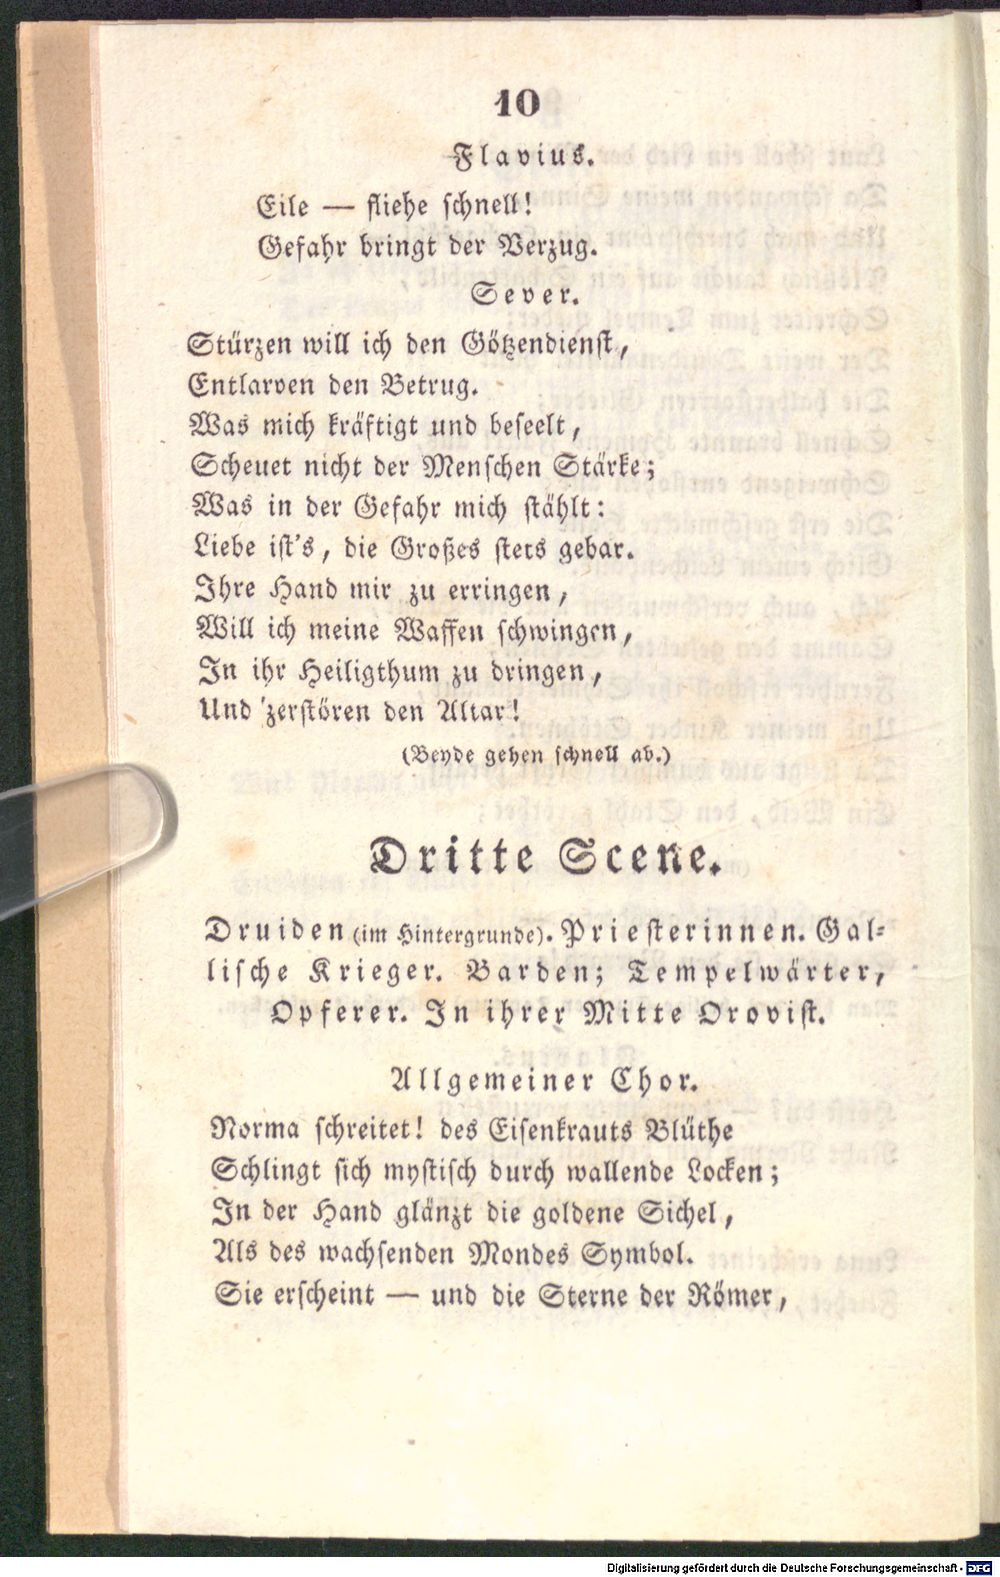 10
Flavius.
Eile — fliehe schnell!
Gefahr bringt der Verzug.
Sever.
Stürzen will ich den Götzendienst,
Entlarven den Betrug.
Was mich kräftigt und beseelt,
Scheuet nicht der Menschen Stärke;
Was in der Gefahr mich stählt:
Liebe ist's, die Großes stets gebar.
Ihre Hand mir zu erringen,
Will ich meine Waffen schwingen,
In ihr Heiligthum zu dringen,
Und zerstören den Altar!
(Beyde gehen schnell ab.)
Dritte Scene.
Druiden (im Hintergrunde). Priesterinnen. Gal-
lische Krieger. Barden; Tempelwärter,
Opferer. In ihrer Mitte Orovist.
Allgemeiner Chor.
Norma schreitet! des Eisenkrauts Blüthe
Schlingt sich mystisch durch wallende Locken;
In der Hand glänzt die goldene Sichel,
Als des wachsenden Mondes Symbol.
Sie erscheint — und die Sterne der Römer,
Digitalisierung gefördert durch die Deutsche Forschungsgemeinschaft - DFG